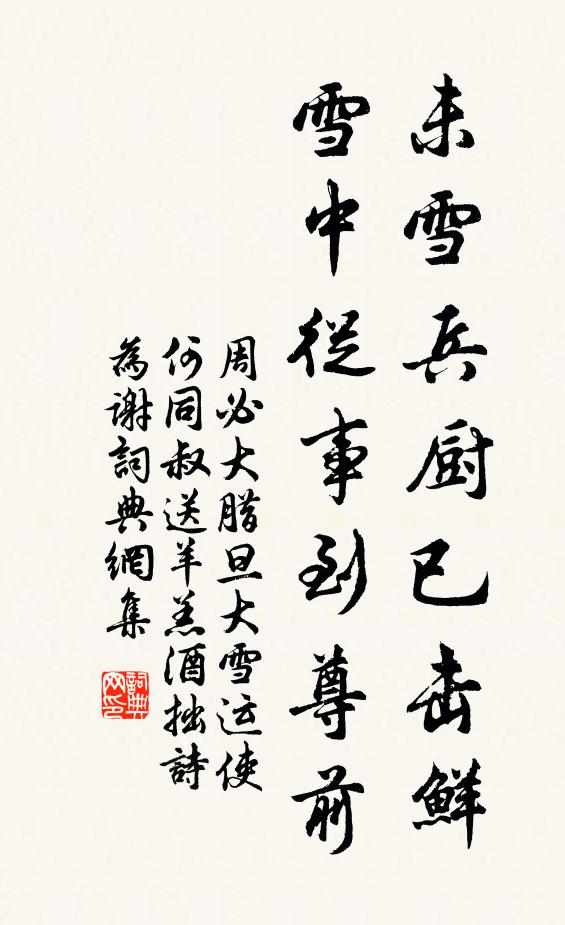 未雪兵厨已击鲜
雪中從事到尊前
周必大腊旦大雪运使
何同叔送羊羔酒拙詩
為谢詞典網集
詞典网印